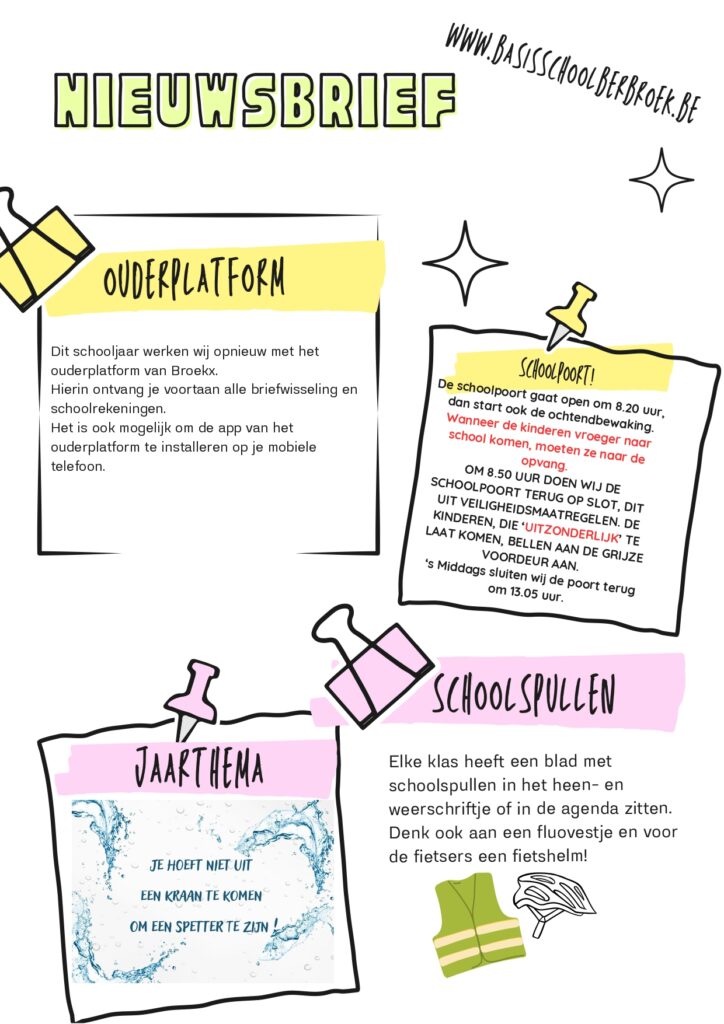 WWW.BASISSCHOOLBERBROEK.BE
NIEUWSBRIEF
OUDERPLATFORM
Dit schooljaar werken wij opnieuw met het
ouderplatform van Broekx.
Hierin ontvang je voortaan alle briefwisseling en
schoolrekeningen.
Het is ook mogelijk om de app van het
ouderplatform te installeren op je mobiele
telefoon.
SCHOOLPOORT!
De schoolpoort gaat open om 8.20 uur,
dan start ook de ochtendbewaking.
Wanneer de kinderen vroeger naar
school komen, moeten ze naar de
opvang.
OM 8.50 UUR DOEN WIJ DE
SCHOOLPOORT TERUG OP SLOT, DIT
UIT VEILIGHEIDSMAATREGELEN. DE
KINDEREN, DIE ‘UITZONDERLIJK’ TE
LAAT KOMEN, BELLEN AAN DE GRIJZE
VOORDEUR AAN.
‘s Middags sluiten wij de poort terug
om 13.05 uur.
SCHOOLSPULLEN
Elke klas heeft een blad met
schoolspullen in het heen- en
weerschriftje of in de agenda zitten.
Denk ook aan een fluovestje en voor
de fietsers een fietshelm!
JAARTHEMA
JE HOEFT NIET UIT
EEN KRAAN TE KOMEN
OM EEN SPETTER TE ZIJN !